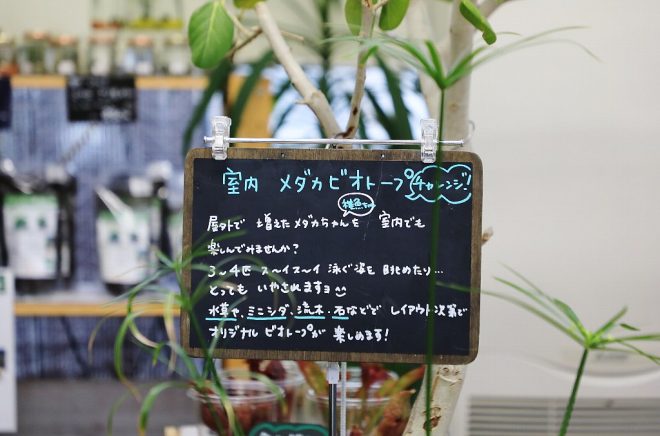 室内 メダカビオトープ チャレンジ!
屋外で 増えたメダカちゃんを 室内でも
楽しんでみませんか?
3〜4匹 ス〜イス〜イ 泳ぐ姿を 眺めたり...
とっても いやされますョ
水草や、ミニシダ、流木・石などで レイアウト次第で
オリジナル ビオトープが 楽しめます!